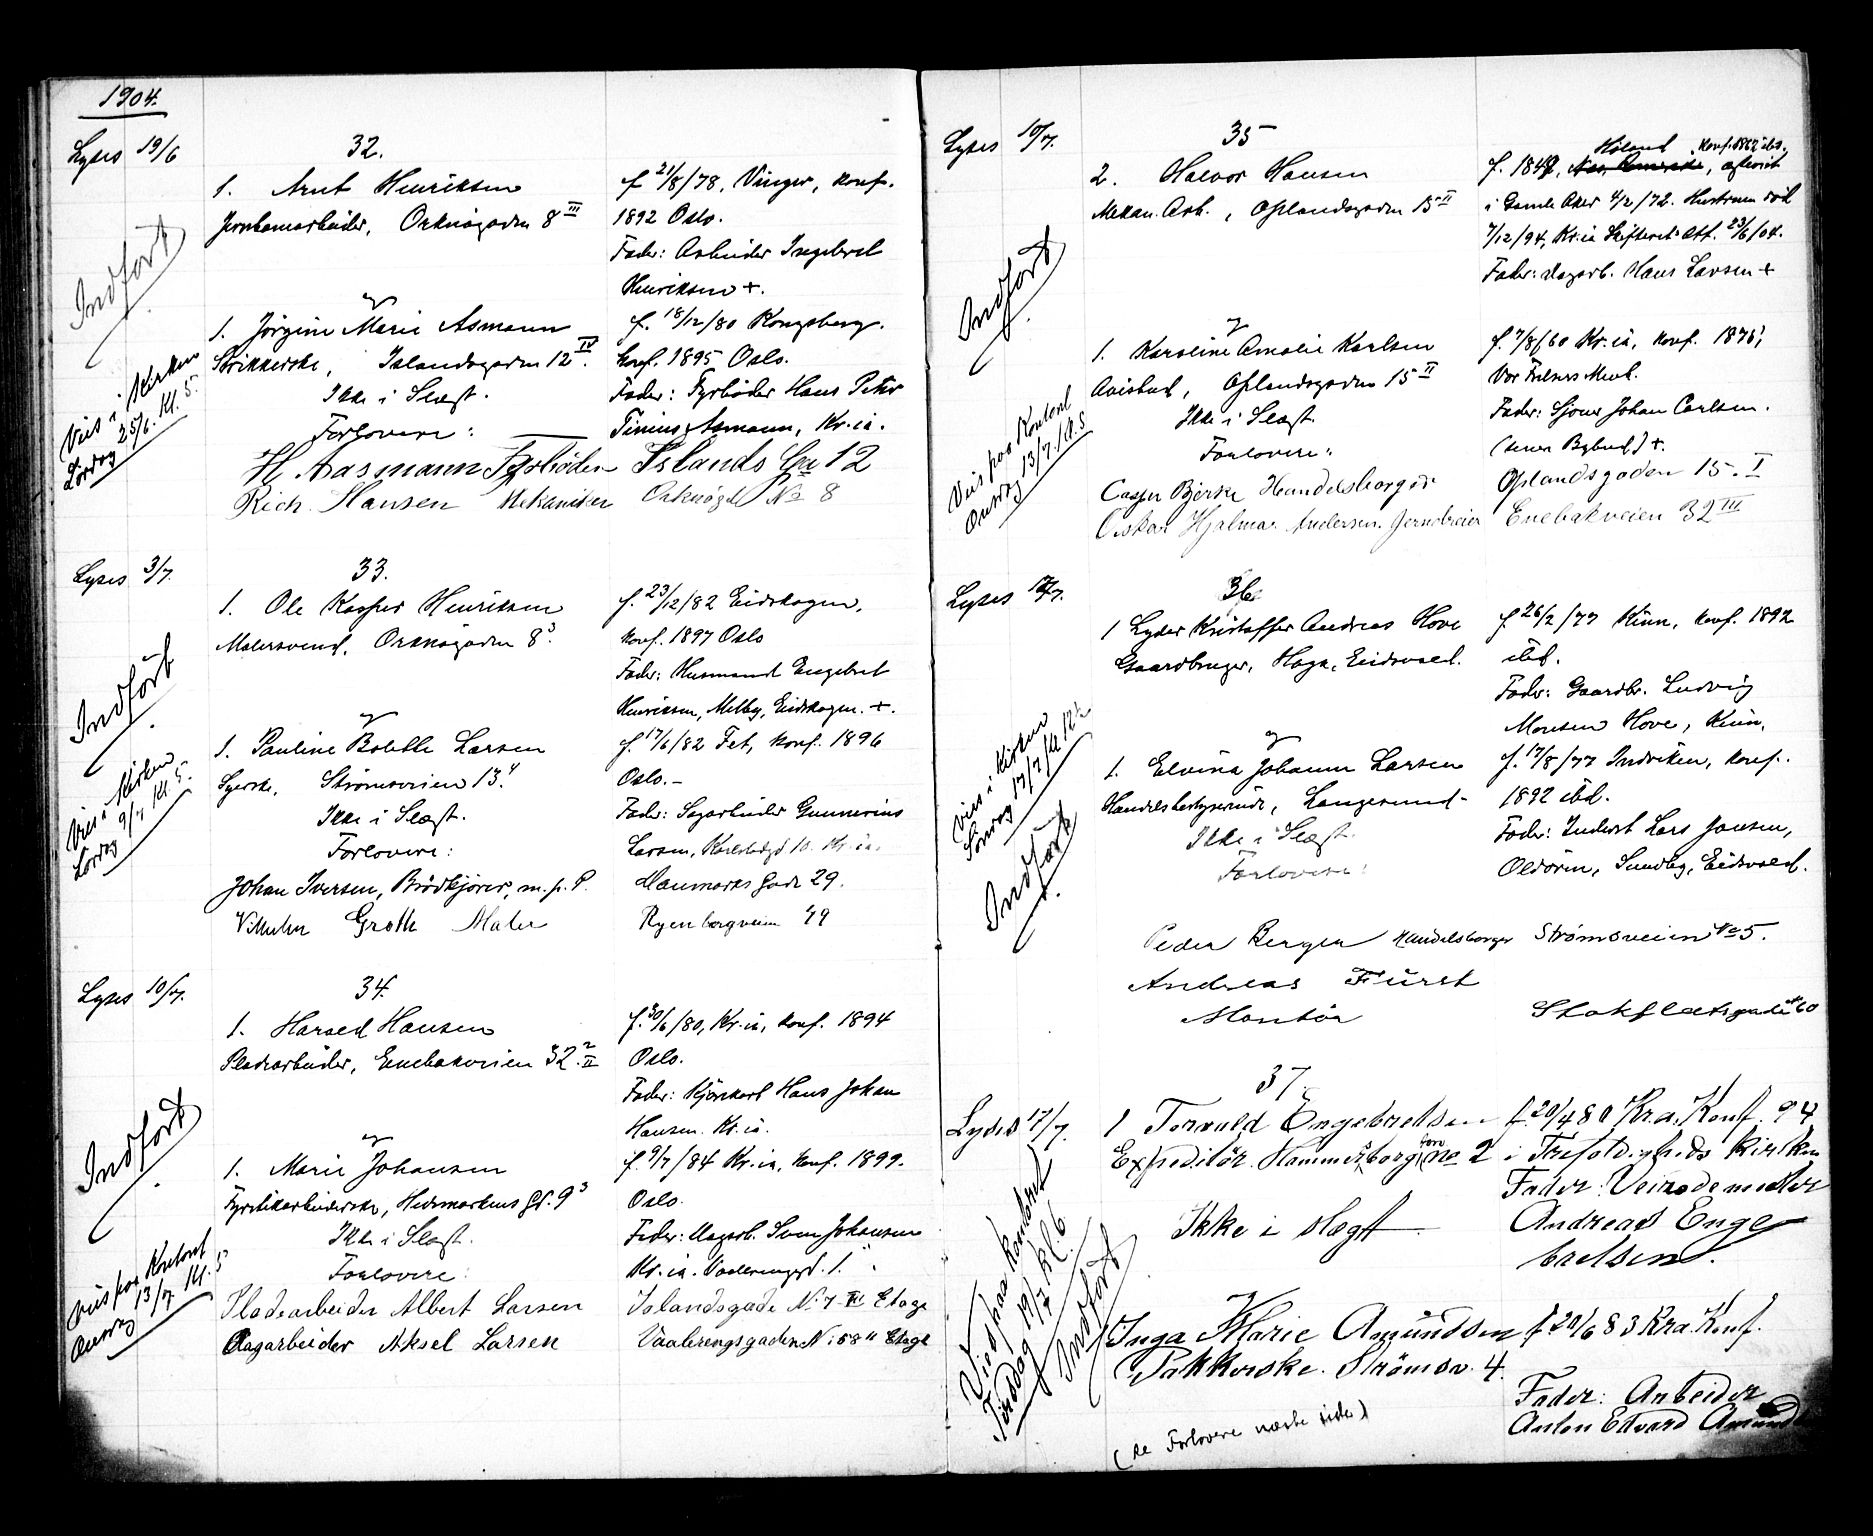 1904.
Lyses 19/6
32.
1. Arnt Henriksen
f. 21/8/78, Vinger, konf.
Jernbanearbeider, Orknøgaden 8 III
1892 Oslo.
Fader: Arbeider Ingebret
Henriksen +.
Indført
og
1. Jørgine Marie Asmann
f. 18/12/80 Kongsberg.
Strikkerske, Islandsgaden 12 IV.
konf. 1895 Oslo.
Ikke i Slægt.
Fader: Fyrbøder Hans Peter
Forlovere:
Tinius Asmann, Kr.ia.
Vies i Kirken
Lørdag 25/6. Kl. 5.
H. Aasmann Fyrbøder Islands Ga 12
Rich. Hansen Mekaniker Orknøgd No 8
Lyses 3/7.
33.
1. Ole Kasper Henriksen
f. 23/12/82 Eidskogen,
Malersvend, Orknøgaden 8 3.
konf. 1897 Oslo
Fader: Husmand Engebret
Henriksen, Melby, Eidskogen. +.
Indført
og
1. Pauline Bolette Larsen
f. 17/6/82 Fet, konf. 1896
Syerske, Strømsveien 13 4.
Oslo.-
Ikke i Slægt.
Fader: Sagarbeider Gunnerius
Forlovere:
Larsen, Karlstadgd 10. Kr.ia.
Vies i Kirken
Lørdag 9/7 Kl. 5.
Johan Iversen, Brødkjører, m. p. P. Danmarks Gade 29.
Vilhelm Groth Maler Ryenbergveien 49
Lyses 10/7.
34.
1. Harald Hansen
f. 30/6/80, Kr.ia, konf. 1894
Pladearbeider, Enebakveien 32. II
Oslo.
Fader: Kjørekarl Hans Johan
Hansen. Kr.ia.
Indført
og
1. Marie Johansen
f. 9/7/84 Kr.ia, konf. 1899.
Fyrstikarbeiderske, Hedemarkens Gd. 9 3
Oslo.
Ikke i Slægt.
Fader: Dagarb. Sven Johansen
Forlovere:
Kr.ia. Vaalerenggd. 1.
Vies paa Kontoret
Onsdag 13/7 Kl. 5
Pladearbeider Albert Larsen Islandsgade No 7 III Etage
Dagarbeider Aksel Larsen Vaalerengsgaden No 58 II Etage
Lyses 10/7.
35
Høland konf. 1862 ibd.
2. Halvor Hansen
f. 1849, afskeiet
Mekan. Arb., Øslandsgaden 15 II
i Gamle Aker 4/2/72. Hustruen død
7/12/94, Kr.ia Skifteret Att. 23/6/04.
Fader: dagarb. Hans Larsen +
Indført
og
1. Karoline Amalie Karlsen
f. 7/8/60 Kr.ia, konf. 1875,
Avisbud, Øslandsgaden 15 II
Vor Frelsers Menl.
Ikke i Slægt.
Fader: Sjour Johan Carlsen.
Forlovere:
(senere Bybud) +.
Vies paa Kontoret
Onsdag 13/7. Kl. 5
Casper Bjerke Handelsborger Øslandsgaden 15. I
Oskar Hjalmar Andersen. Jerndreier Enebakveien 32 III
Lyses 17/7.
36.
1 Lyder Kristoffer Andreas Hove
f. 26/2/77 Kinn, konf. 1892
Gaardbruger, Haga, Eidsvold.
ibd.
Fader: Gaardbr. Ludvig
Monsen Hove, Kinn,
og
1. Elvina Johanne Larsen
f. 17/8/77 Indviken, konf.
Handelsbestyrerinde, Langesund-
1892 ibd.
Ikke i Slægt.
Fader: Inderst Lars Jansen,
Forlovere:
Oldøren, Sundby, Eidsvold.
Vies i Kirken
Søndag 17/7 Kl 12½
Indført
Peder Berger Handelsborger Strømsveien No 5.
Andreas Fürst
Montør Stokfletsgade No 60
37
Lyses 17/7.
1 Torvald Engebretsen f. 20/4 80 Kr.a. Konf. 94
Expeditør. Hammersborg No 2 i Trefoldigheds kirken
Fader: Veirodemester
Ikke i slægt
Andreas Enge
bretsen.
Vies paa kontoret
Tirsdag 19/7 kl. 6
Indført
Inga Marie Amundsen f. 20/6 83 Kra. Konf.
Pakkerske. Strømsv. 4.
Fader: Arbeider
Anton Edvard Amunds
(se Forlovere næste side)